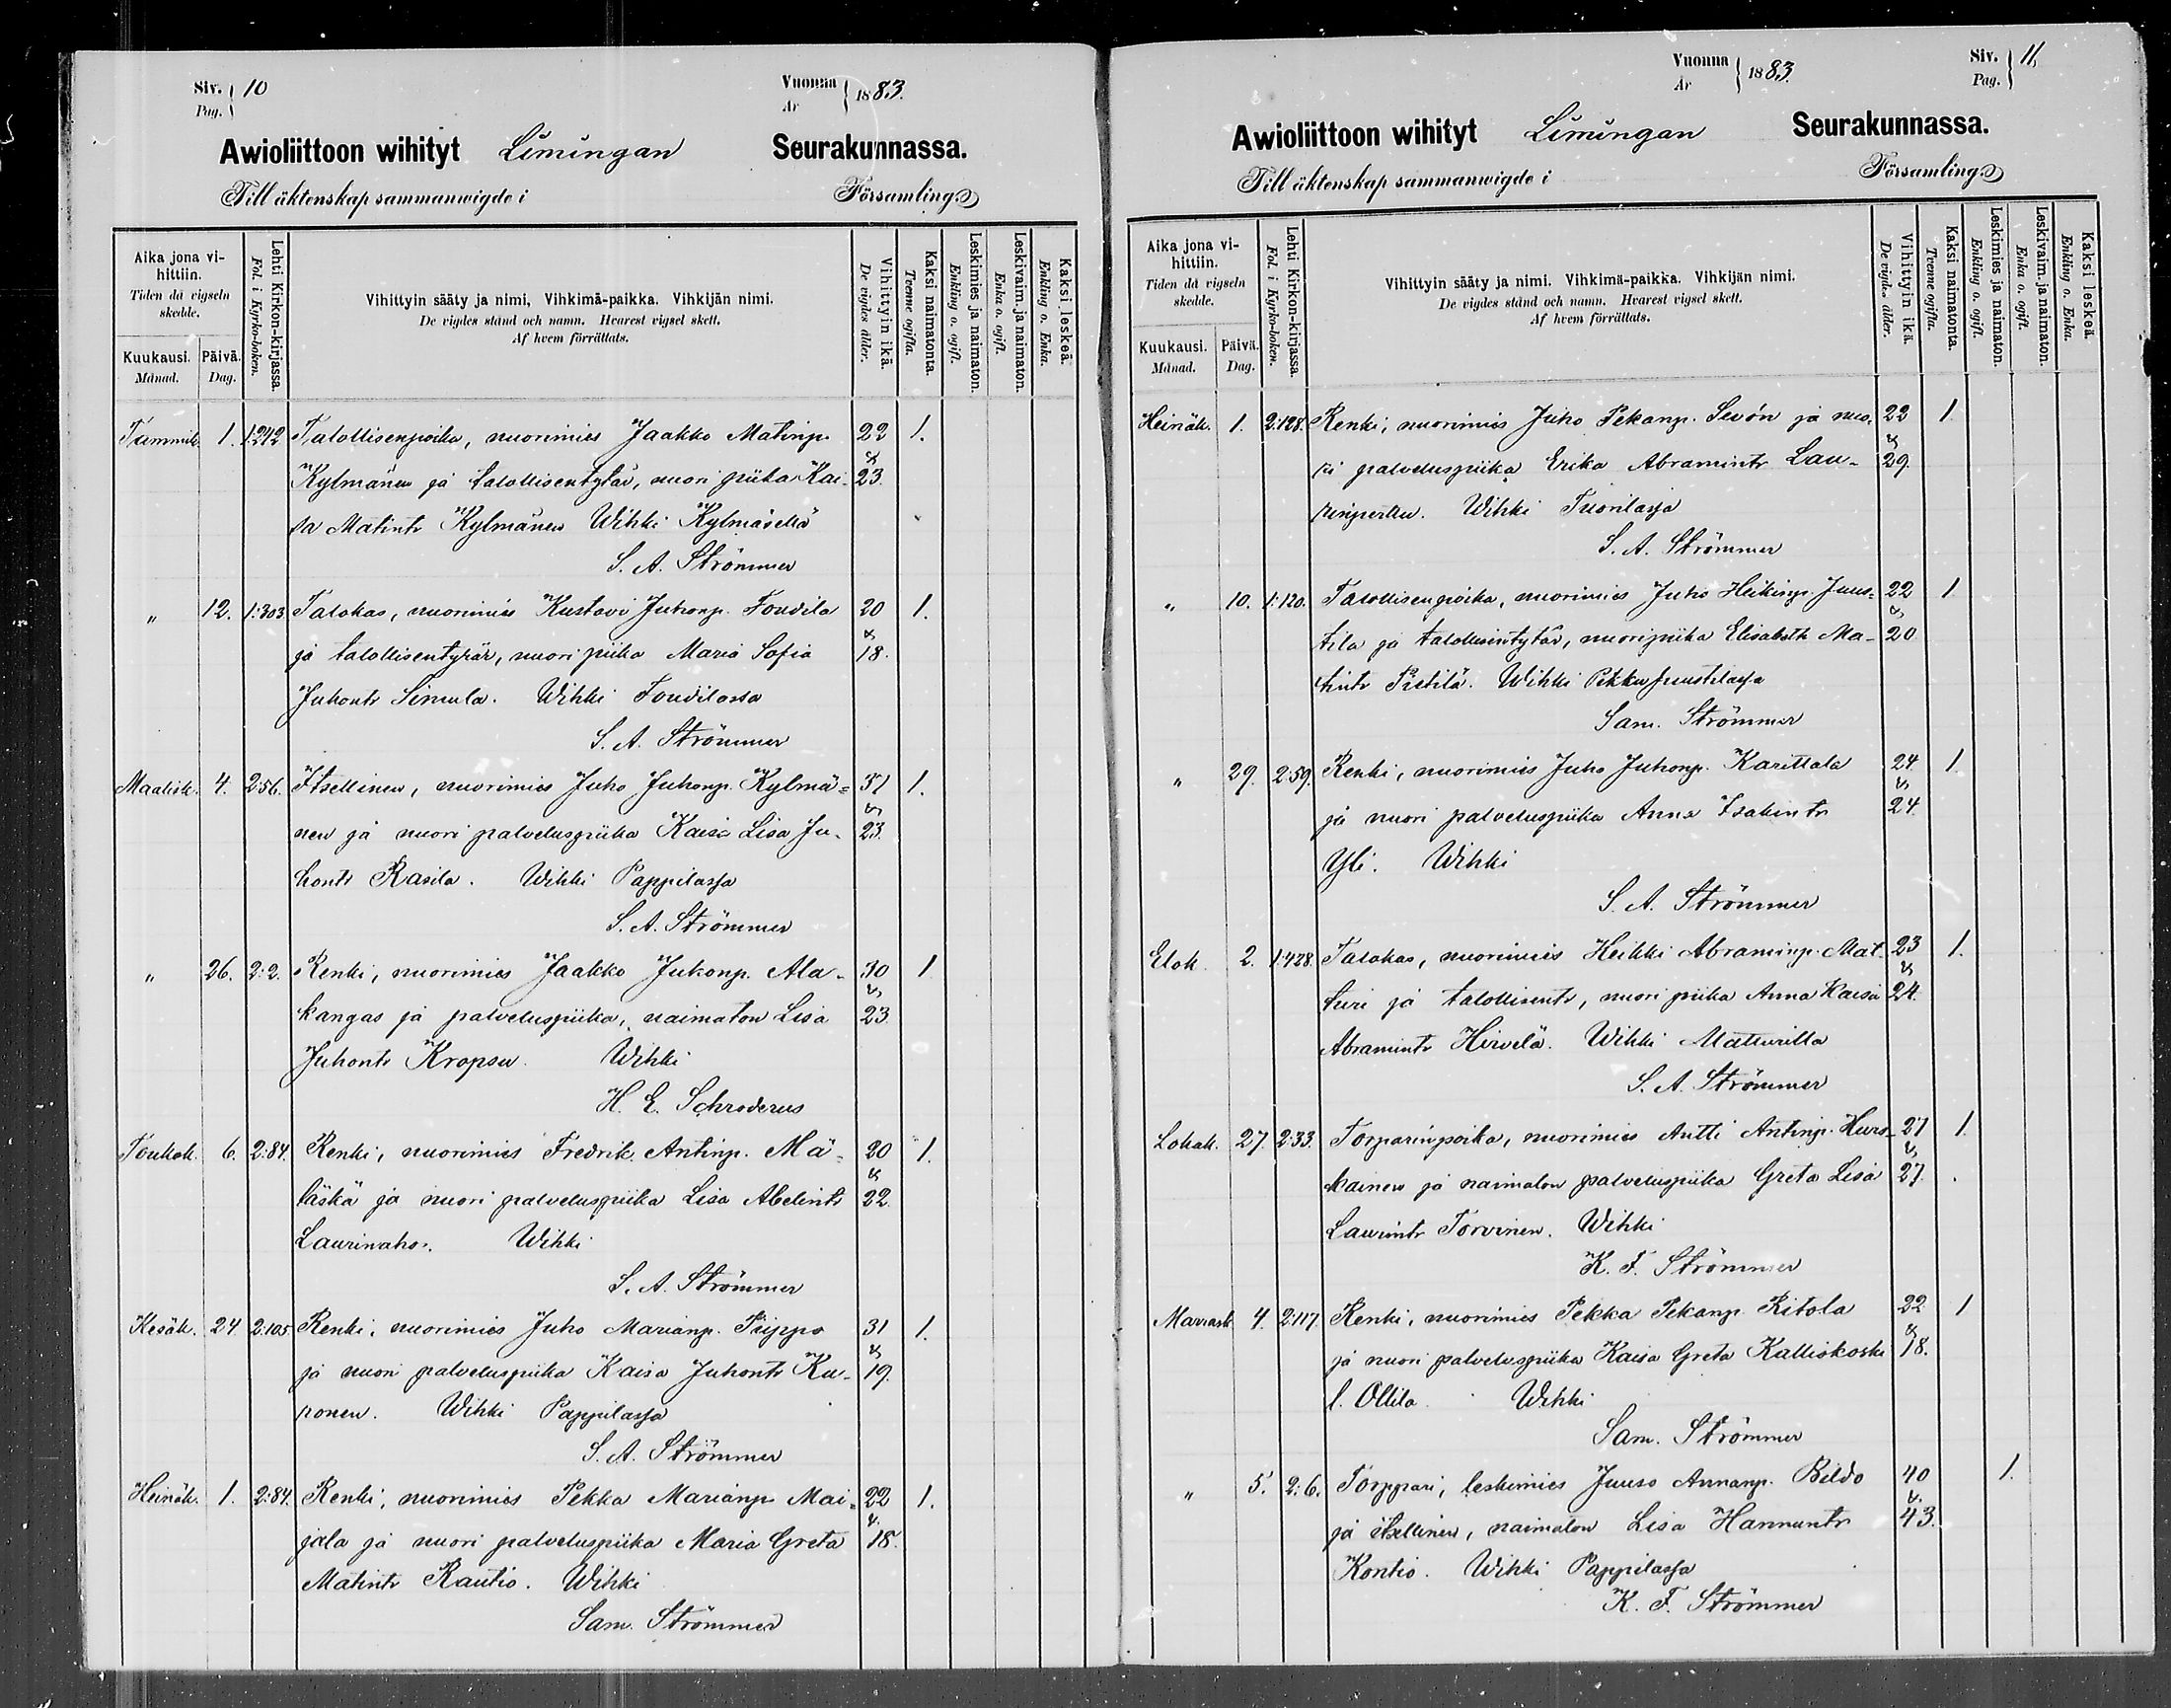 Siv. Pag. 10
Vuonna År 1883.
Awioliittoon wihityt Limingan Seurakunnassa.
Till äktenskap sammanwigde i Församling
Aika jona vihittiin. Tiden då vigseln skedde.
Kuukausi. Månad.
Päivä. Dag.
Lehti Kirkon-kirjassa. Fol. i Kyrko-boken.
Vihittyin sääty ja nimi, Vihkimä-paikka. Vihkijän nimi.
De vigdes stånd och namn. Hvarest vigsel skett.
Af hvem förrättats.
Vihittyin ikä. De vigdes ålder.
Kaksi naimatonta. Tvenne ogifta.
Leskimies ja naimaton. Enkling o. ogift.
Leskivaim. ja naimaton. Enka o. ogift.
Kaksi leskeä. Enkling o. Enka.
Tammik. 1. 1:242 Talollisenpoika, nuorimies Jaakko Matinp. 22 1.
Kylmänen ja talollisentytär, nuori piika Kai- & 23.
sa Matintr Kylmänen Wihki Kylmäsellä
S. A. Strömmer
" 12. 1:303 Talokas, nuorimies Kustavi Juhonp. Foudila 20 1.
ja talollisentytär, nuori piika Maria Sofia & 18.
Juhontr Simula. Wihki Foudilassa
S. A. Strömmer
Maalisk. 4. 2:56. Itsellinen, nuorimies Juho Juhonp. Kylmä= 51 1.
nen ja nuori palveluspiika Kaisa Lisa Ju- & 23.
hontr Rasila. Wihki Pappilassa
S. A. Strömmer
" 26. 2:2. Renki, nuorimies Jaakko Juhonp. Ala- 30 1
kangas ja palveluspiika, naimaton Lisa & 23
Juhontr Kropsu. Wihki
H. E. Schroderus
Toukok. 6. 2:84. Renki, nuorimies Fredrik Antinp. Mä- 20 1.
läskä ja nuori palveluspiika Lisa Abelintr & 22
Laurinaho. Wihki
S. A. Strömmer
Kesäk. 24 2:105 Renki, nuorimies Juho Marianp. Piippo 31 1.
ja nuori palveluspiika Kaisa Juhontr Ku- & 19.
ronen. Wihki Pappilassa
S. A. Strömmer
Heinäk. 1. 2:84. Renki, nuorimies Pekka Marianp Mai- 22 1.
jala ja nuori palveluspiika Maria Greta & 18.
Matintr Rautio. Wihki
Sam. Strömmer
Vuonna År 1883.
Siv. Pag. 11,
Awioliittoon wihityt Limingan Seurakunnassa.
Till äktenskap sammanwigde i Församling
Aika jona vihittiin. Tiden då vigseln skedde.
Kuukausi. Månad.
Päivä. Dag.
Lehti Kirkon-kirjassa. Fol. i Kyrko-boken.
Vihittyin sääty ja nimi. Vihkimä-paikka. Vihkijän nimi.
De vigdes stånd och namn. Hvarest vigsel skett.
Af hvem förrättats.
Vihittyin ikä. De vigdes ålder.
Kaksi naimatonta. Tvenne ogifta.
Leskimies ja naimaton. Enkling o. ogift.
Leskivaim. ja naimaton. Enka o. ogift.
Kaksi leskeä. Enkling o. Enka.
Heinäk. 1. 2:128. Renki, nuorimies Juho Pekanp. Sevón ja nuo- 22 1
ri palveluspiika Erika Abramintr Lau- & 29.
rinperttu. Wihki Tuorilassa
S. A. Strömmer
" 10. 1:120. Talollisenpoika, nuorimies Juho Heikinp. Juus- 22 1
tila ja talollisentytär, nuoripiika Elisabeth Ma- & 20
tintr Pietilä. Wihki Pikku Juustilassa
Sam. Strömmer
" 29. 2:59. Renki, nuorimies Juho Juhonp. Karittala 24 1.
ja nuori palveluspiika Anna Isakintr & 24
Yli. Wihki
S. A. Strömmer
Elok. 2. 1:428. Talokas, nuorimies Heikki Abraminp. Mat- 23 1.
turi ja talollisentr, nuori piika Anna Kaisa & 24.
Abramintr Hirvelä. Wihki Matturilla
S. A. Strömmer
Lokak. 27. 2:33. Torparinpoika, nuorimies Antti Antinp. Hurs- 27 1
kainen ja naimaton palveluspiika Greta Lisa & 27.
Laurintr Torvinen. Wihki
K. F. Strömmer
Marrask. 4. 2:117. Renki, nuorimies Pekka Pekanp. Ritola 22 1
ja nuori palveluspiika Kaisa Greta Kalliokoski & 18.
l. Ollila. Wihki
Sam. Strömmer
" 5. 2:6. Torppari, leskimies Juuso Annanp. Bildo 40 1.
ja itsellinen, naimaton Lisa Hannuntr & 43.
Kontio. Wihki Pappilassa
K. F. Strömmer